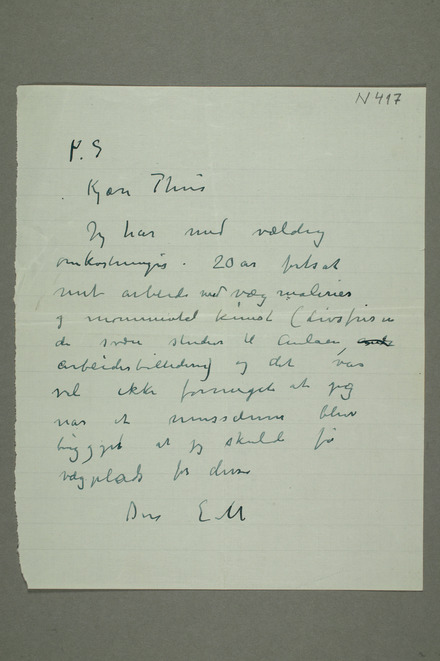 N 417
P.S
Kjære Thiis
Jeg har med vældig
omkostninger 20 år fortsat
mit arbeide med vægmalerier
og monumental kunst (livsfrisen
de svære studier til Aulaen
arbeiderbilleder) og det var
vel ikke formeget at jeg
når et museum blev
bygget at jeg skulde få
vægplads for disse
Din E M